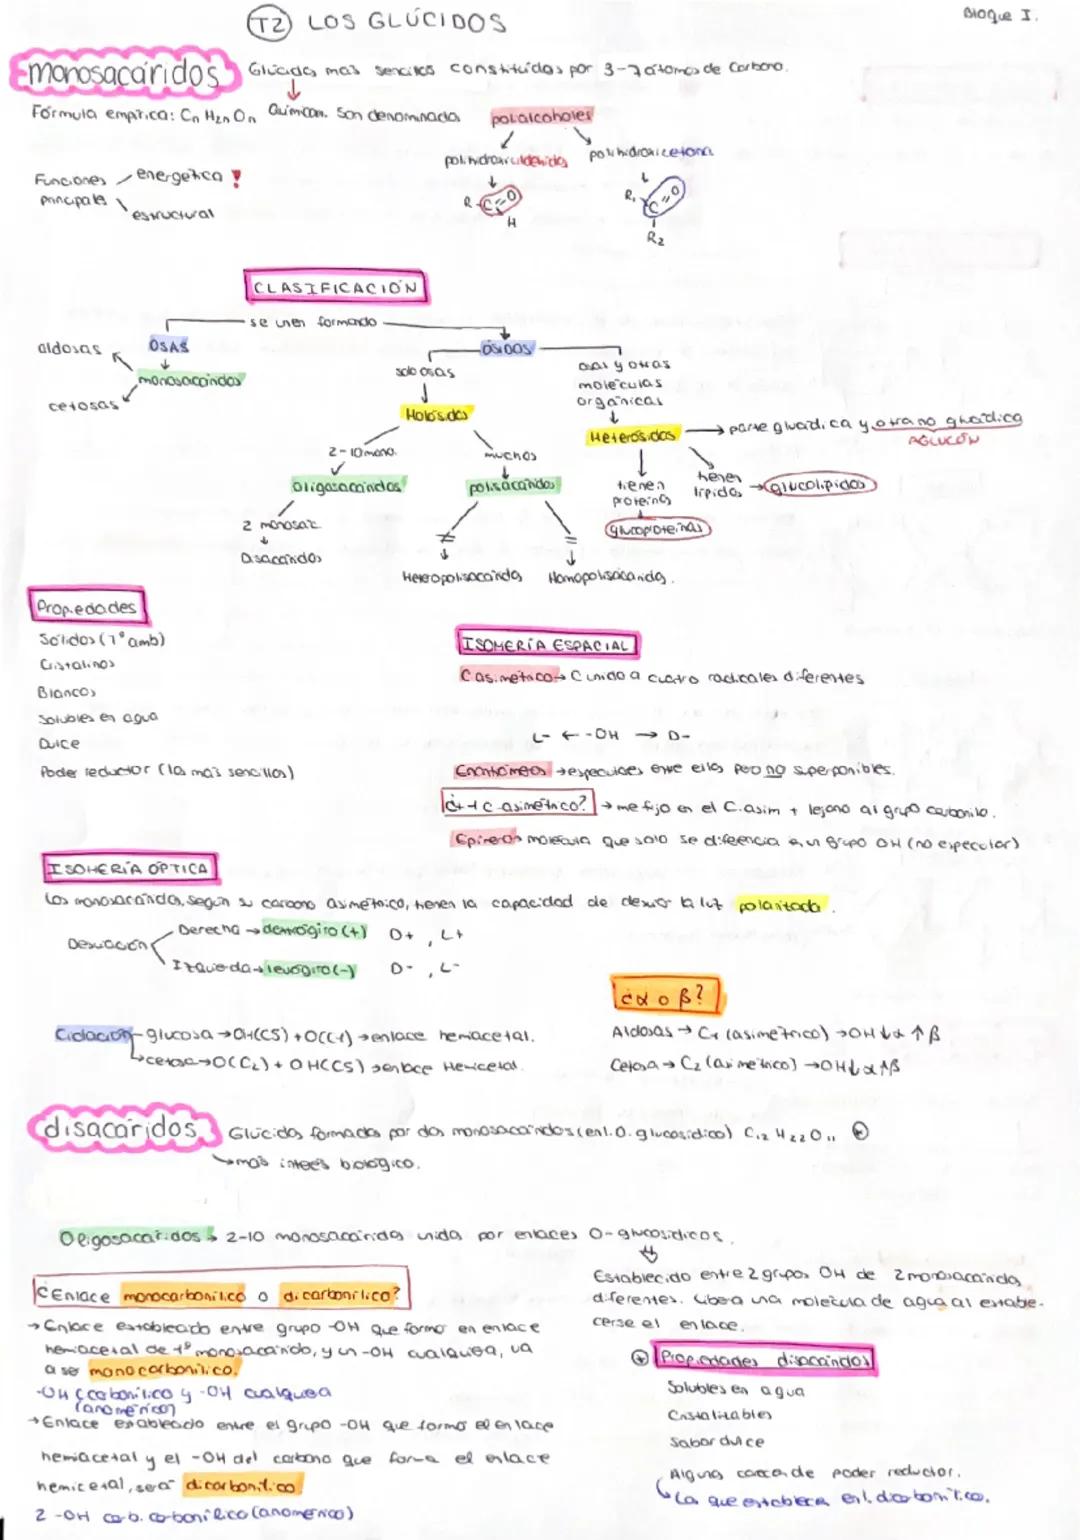 T2 LOS GLÚCIDOS
Bloque I.
monosacáridos
Glúcidos mas sencillos constituidos por 3-7 átomos de Carbono.
Fórmula empírica: Cn H2n On
Químicam. Son denominados polialcoholes
polihidroxialdehidos
polihidroxicetona
R-C=O
H
R1
C=O
R2
Funciones principales
energética !
estructural
CLASIFICACIÓN
se unen formando
OSAS
aldosas
monosacáridos
cetosas
ÓSIDOS
solo osas
Holósidos
2-10 mono.
oligosacáridos
2 monosac.
Disacáridos
muchos
polisacáridos
≠
Heteropolisacáridos
=
Homopolisacáridos.
osas y otras
moléculas
orgánicas
Heterósidos
→ parte glucídica y otra no glucídica
AGLUCÓN
tienen
proteínas
glucoproteínas
tienen
lípidos → glucolípidos
Propiedades
Sólidos (Tº amb)
Cristalinos
Blancos
Solubles en agua
Dulce
Poder reductor (los mas sencillos)
ISOMERÍA ESPACIAL
C asimétrico → C unido a cuatro radicales diferentes
L- ← -OH → D-
Enantiómeros → especulares entre ellos pero no superponibles.
¿+ + C asimétrico? → me fijo en el C.asim + lejano al grupo carbonilo.
Epímeros → molécula que solo se diferencia en un grupo OH (no especular)
ISOMERÍA ÓPTICA
Los monosacáridos, según su carbono asimétrico, tienen la capacidad de desviar la luz polarizada.
Desviación
Derecha → dextrógiro (+) D+, L+
Izquierda → levógiro (-) D-, L-
Ciclación
glucosa → OH(C5) + O(C1) → enlace hemiacetal.
cetosa → O(C2) + OH(C5) → enlace Hemicetal.
¿α o β?
Aldosas → C1 (asimétrico) → OH ↓α ↑β
Cetosa → C2 (asimétrico) → OH ↓α ↑β
disacáridos
Glúcidos formados por dos monosacáridos (enl. O. glucosídico) C12 H22 O11 *
→ mas interés biológico.
Oligosacáridos → 2-10 monosacáridos unidos por enlaces O-glucosídicos.
Establecido entre 2 grupos OH de 2 monosacáridos
diferentes. Libera una molécula de agua al estable-
cerse el enlace.
¿Enlace monocarbonílico o dicarbonílico?
→ Enlace establecido entre grupo -OH que formó en enlace
hemiacetal de 1º monosacárido, y un -OH cualquiera, va
a ser monocarbonílico.
-OH C carbonílico y -OH cualquiera
(anomérico)
→ Enlace establecido entre el grupo -OH que formó el enlace
hemiacetal y el -OH del carbono que forma el enlace
hemicetal, será dicarbonílico
2 -OH carb. carbonílico (anomérico)
* Propiedades disacáridos
Solubles en agua
Cristalizables
Sabor dulce
Alguno carece de poder reductor.
Los que establecen enl. dicarbonílico.